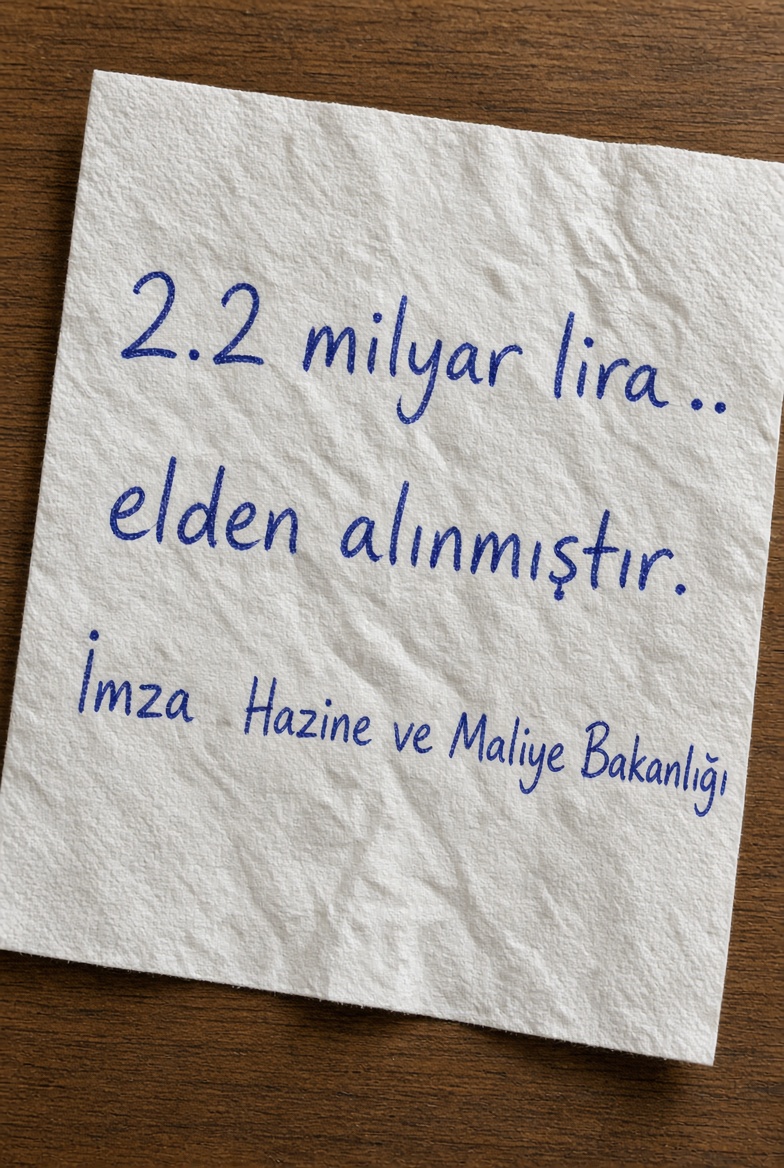 2.2 milyar lira..
elden alınmıştır.
İmza Hazine ve Maliye Bakanlığı